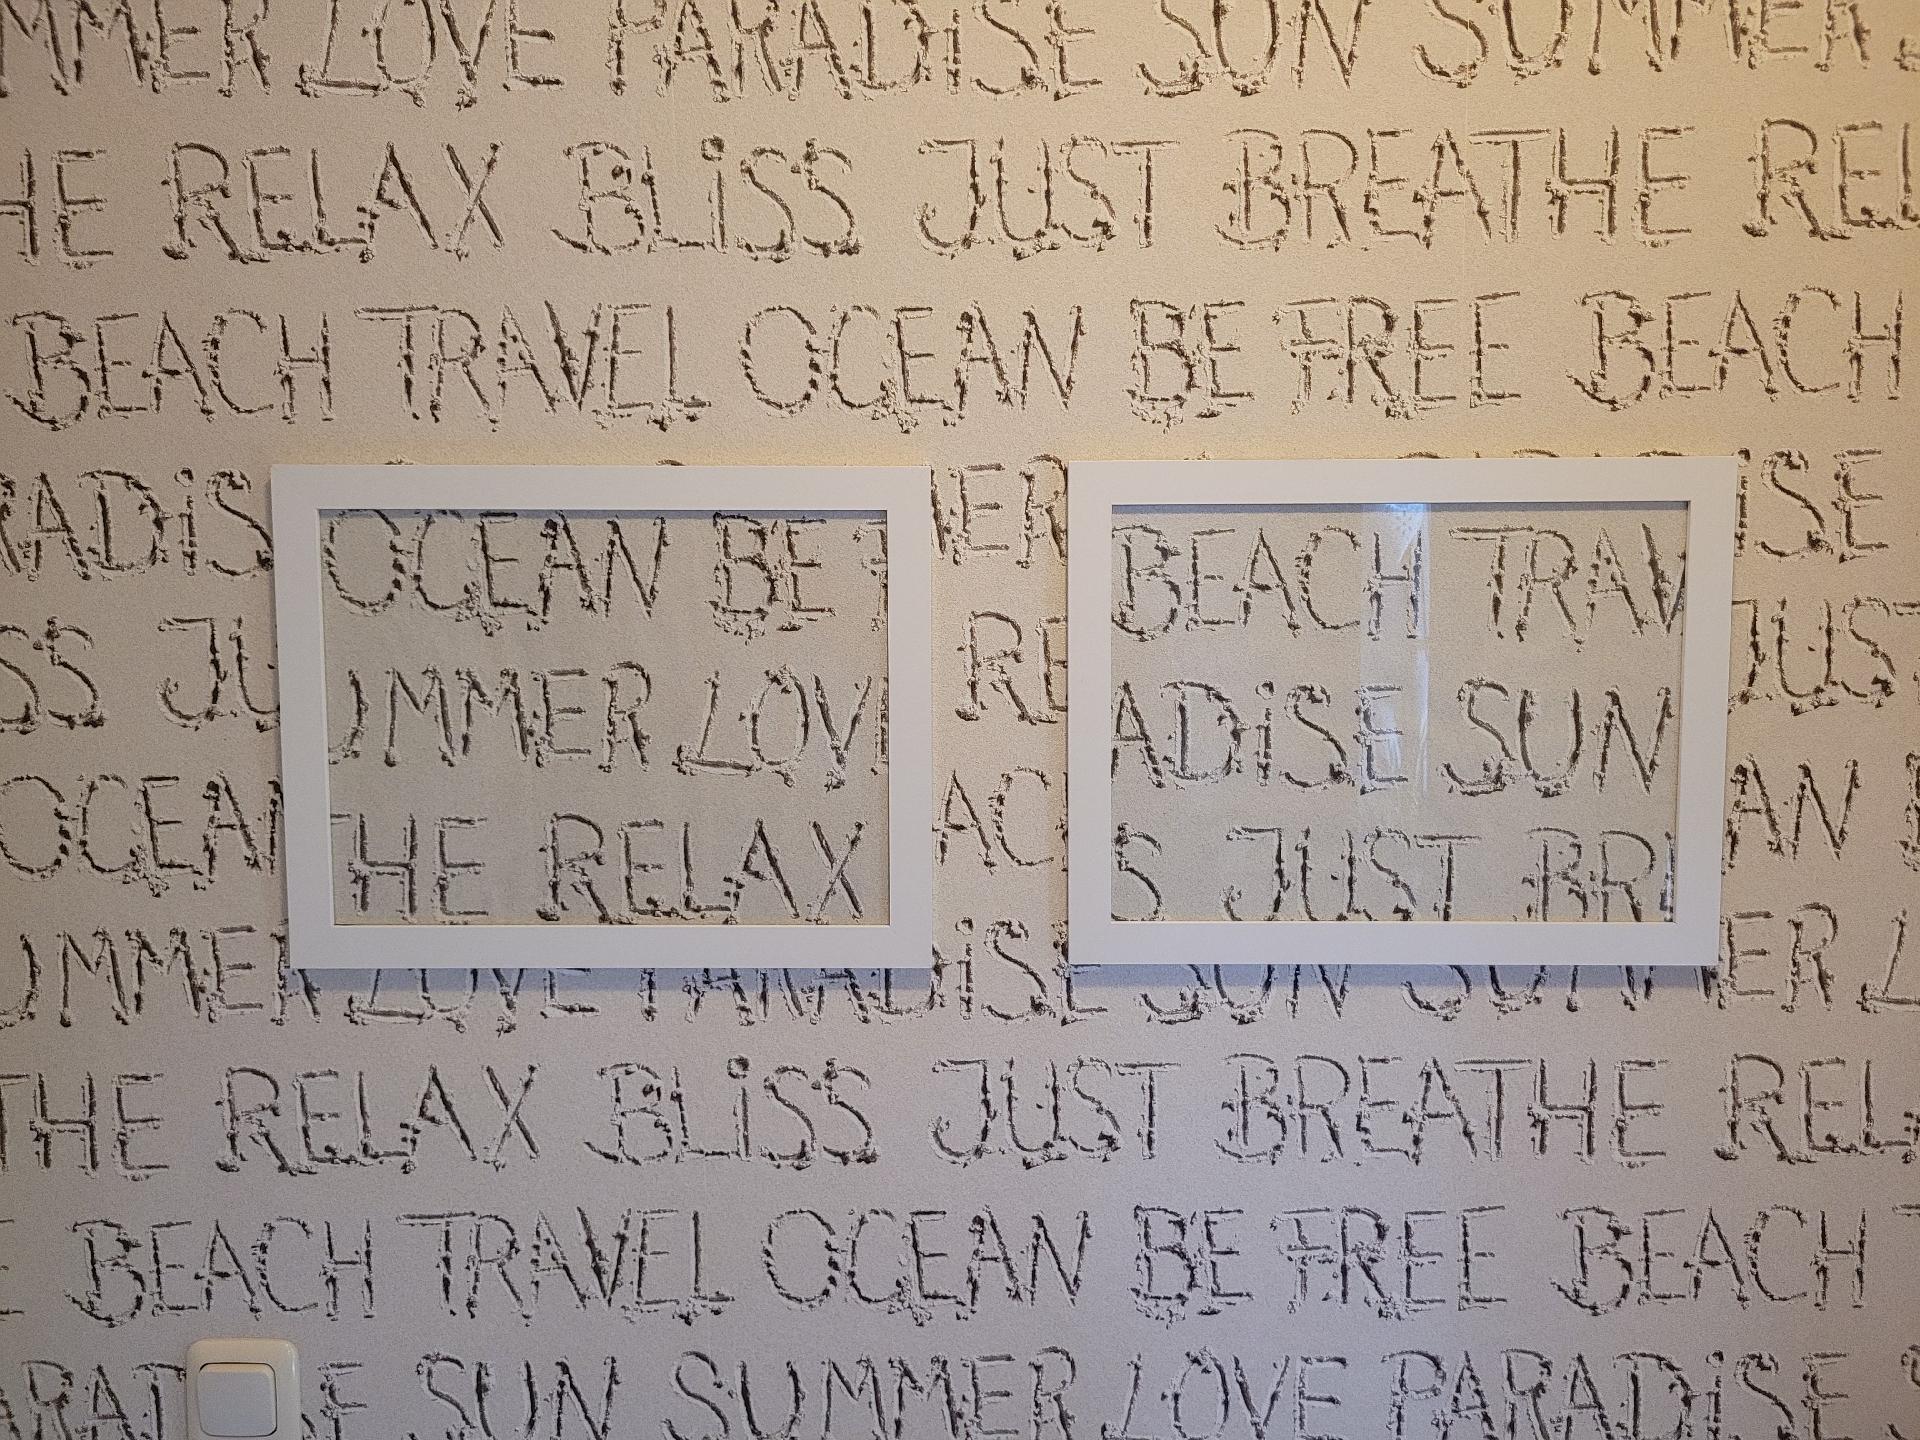 MMER LOVE PARADiSE SUN SUMMER
HE RELAX BLiSS JUST BREATHE REL
BEACH TRAVEL OCEAN BE FREE BEACH
RADiS MER iSE
OCEAN BE F
BEACH TRAV
SS JU RE JUST
UMMER LOV
ADiSE SUN
OCEAN ACH AN
THE RELAX
S JUST BRE
UMMER LOVE PARADiSE SUN SUMMER L
THE RELAX BLiSS JUST BREATHE REL
E BEACH TRAVEL OCEAN BE FREE BEACH T
ARADiSE SUN SUMMER LOVE PARADiSE S